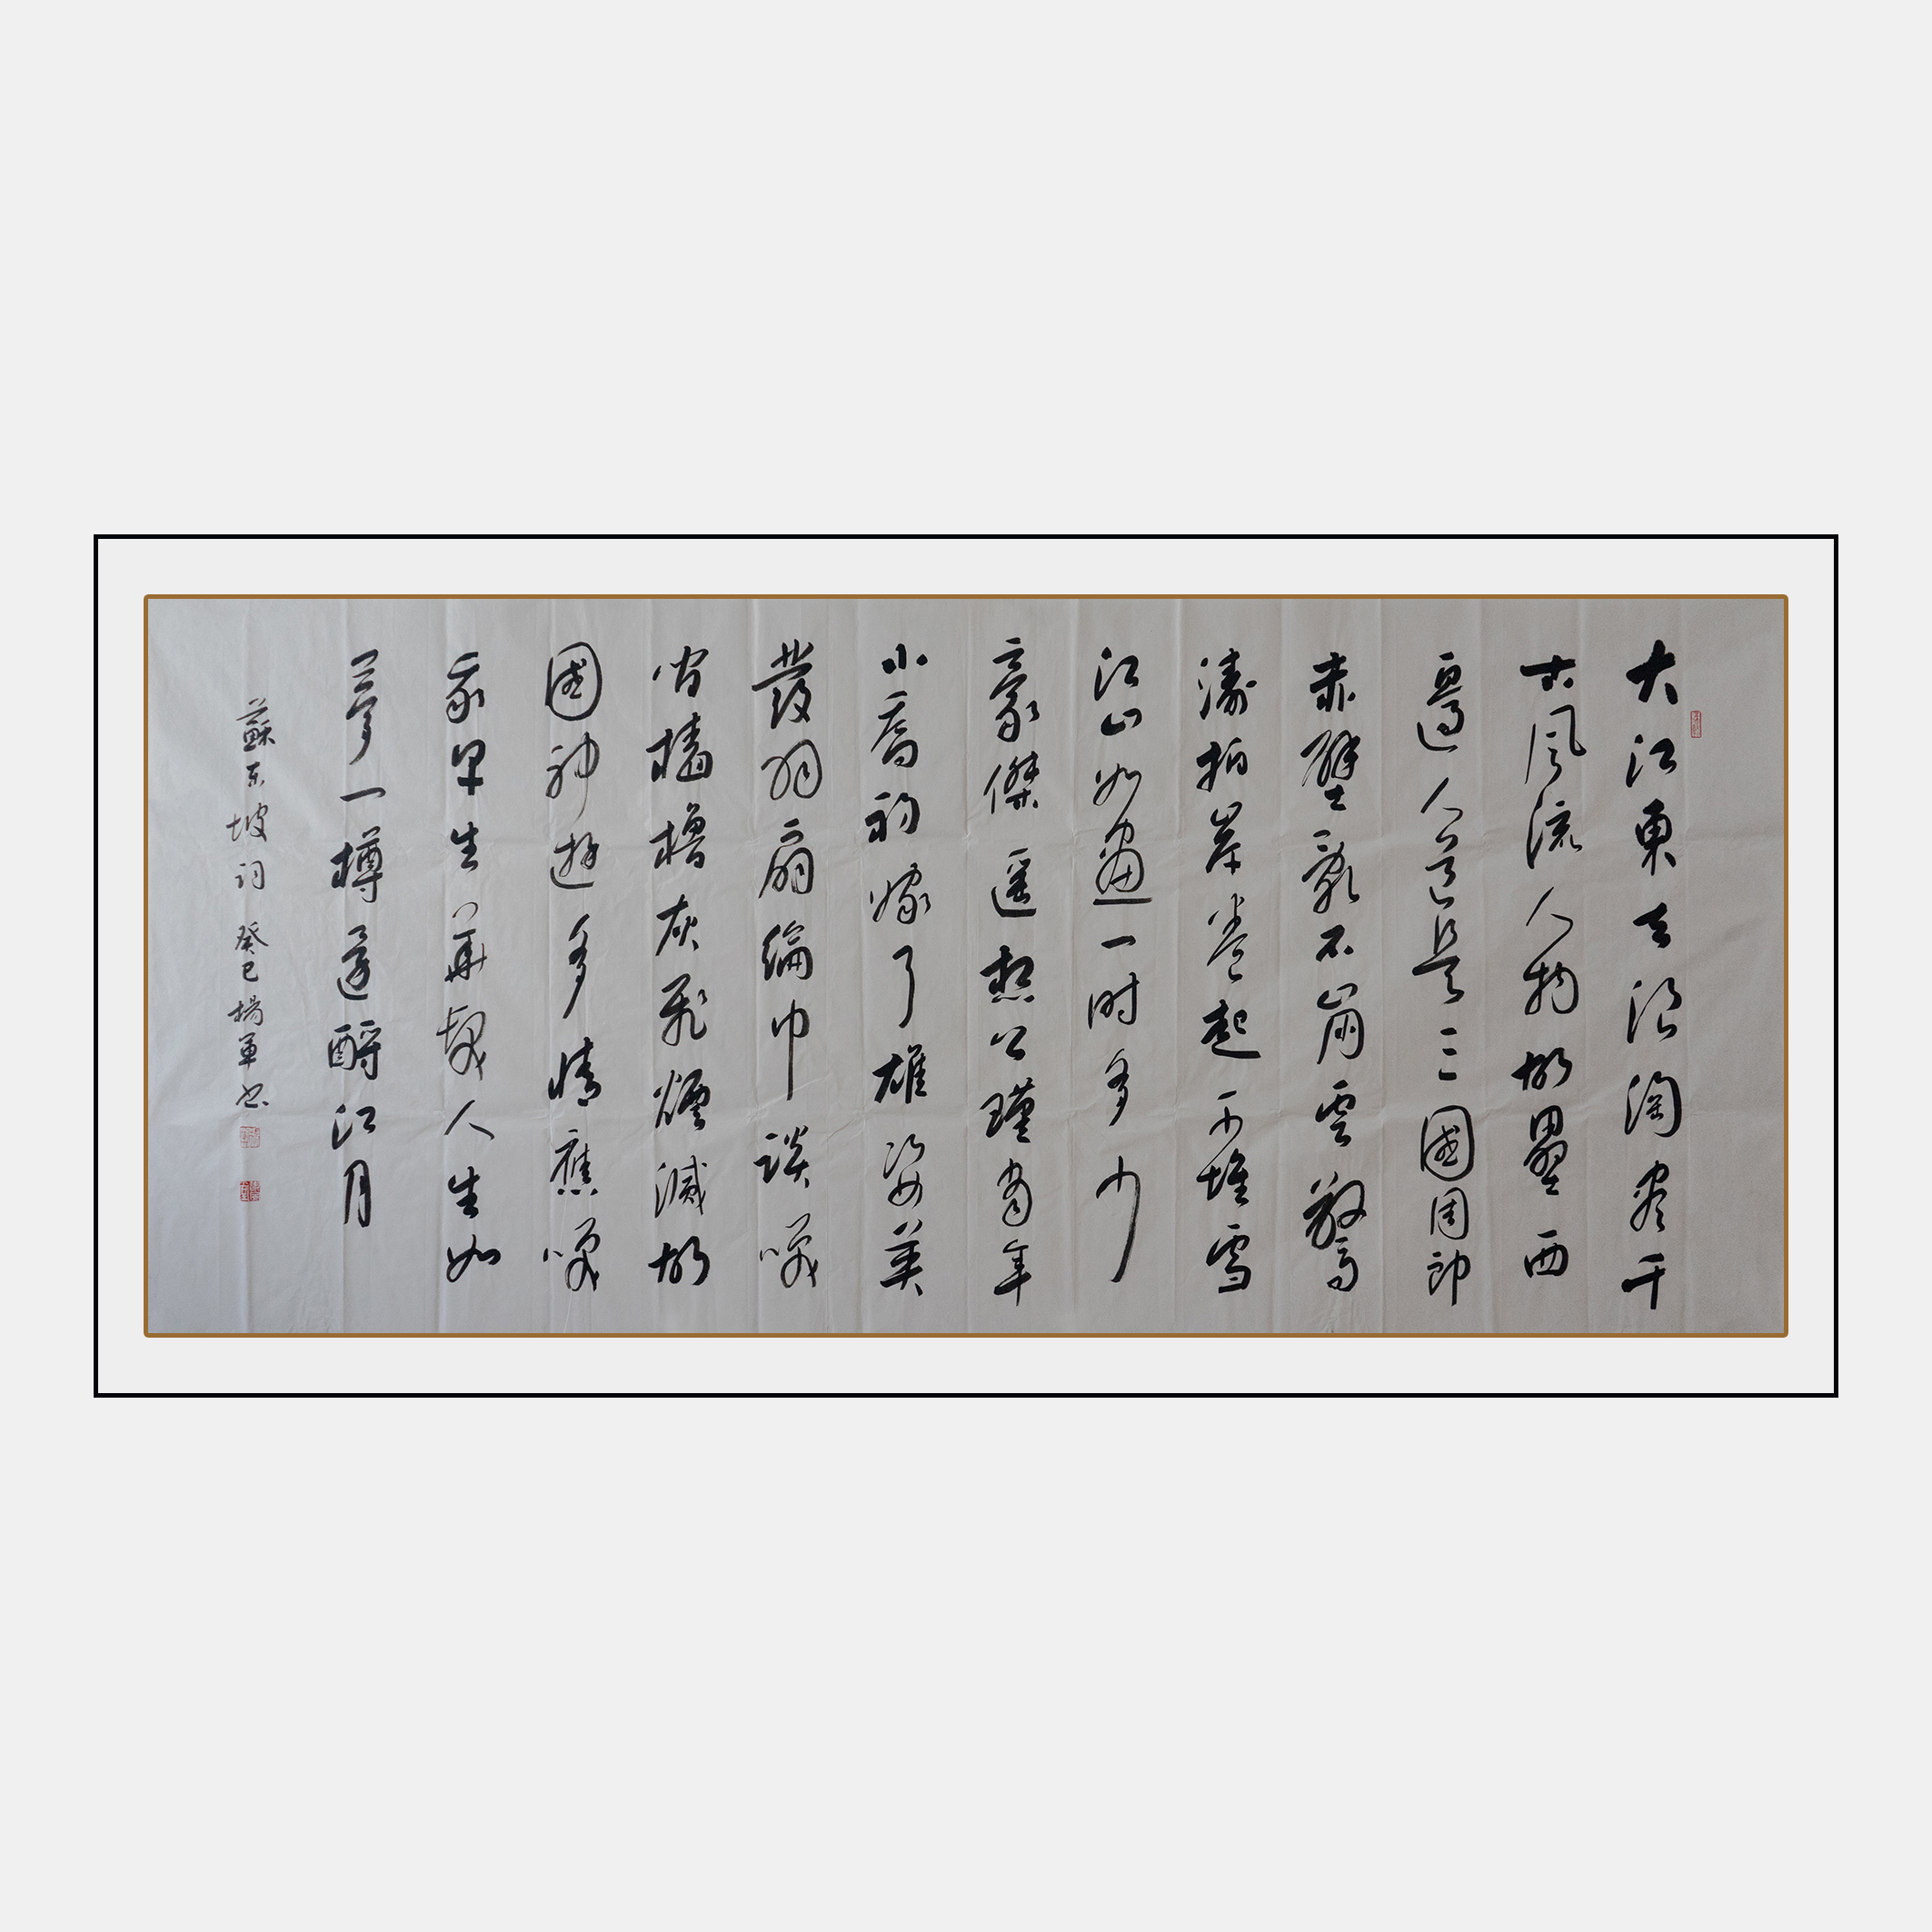 大江東去浪淘盡千
古風流人物故壘西
邊人道是三國周郎
赤壁亂石崩雲驚
濤拍岸卷起千堆雪
江山如畫一时多少
豪傑遥想公瑾當年
小喬初嫁了雄姿英
發羽扇綸巾談笑
間檣櫓灰飛煙滅故
國神遊多情應笑
我早生華髮人生如
夢一樽還酹江月
蘇東坡詞 癸巳楊軍书